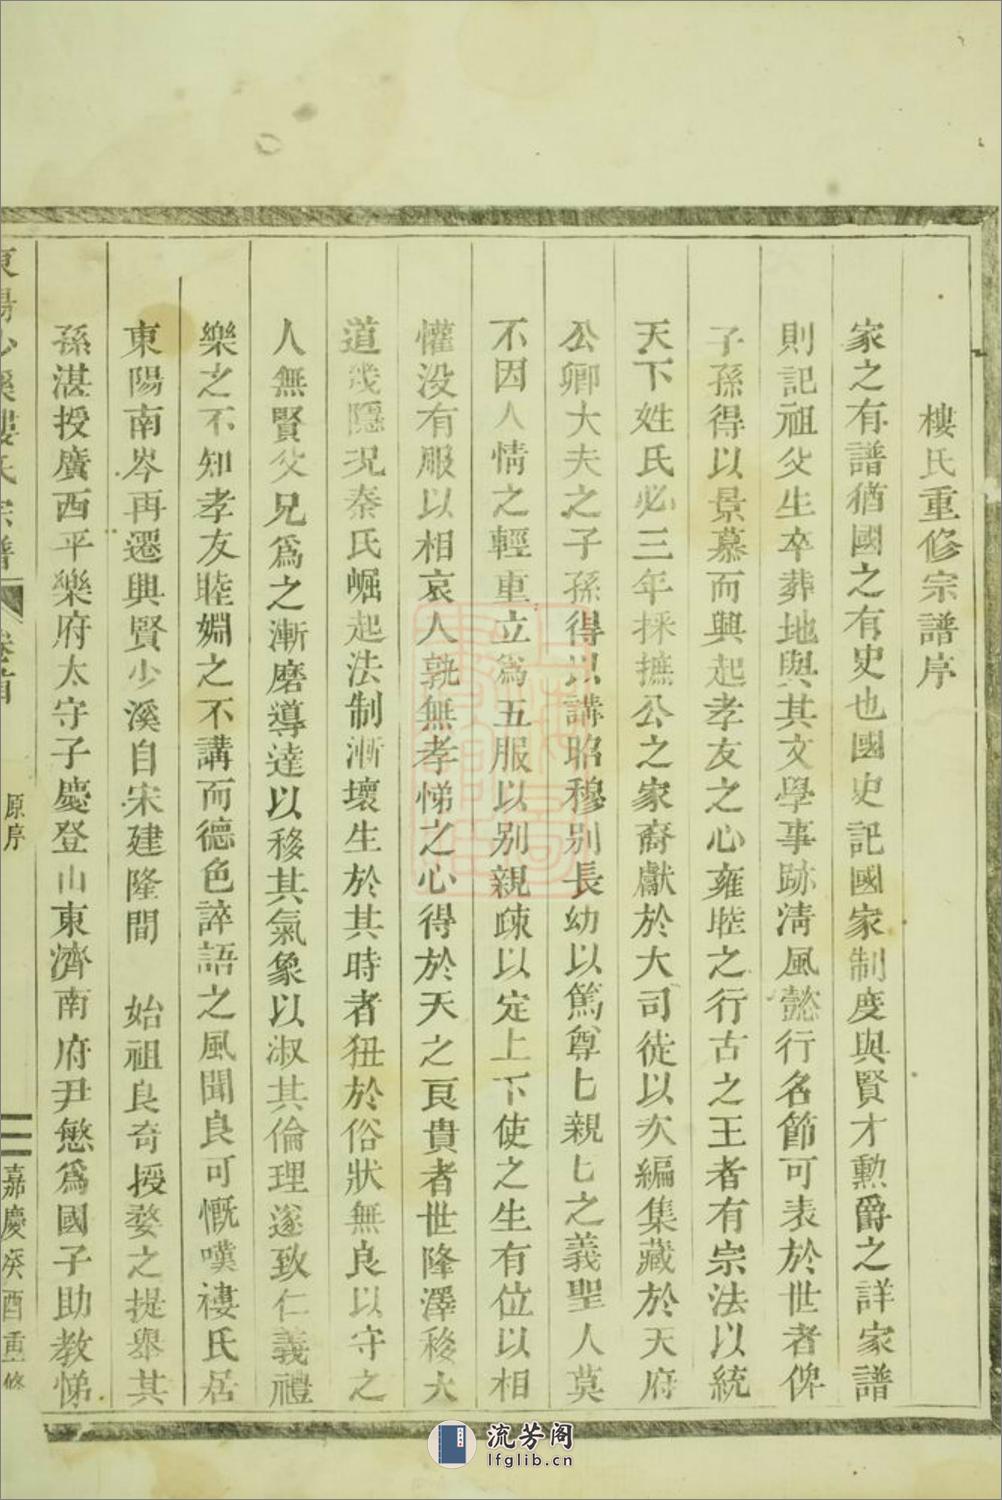 樓氏重修宗譜序
家之有譜猶國之有史也國史記國家制度與賢才勲爵之詳家譜
則記祖父生卒葬地與其文學事跡清風懿行名節可表於世者俾
子孫得以景慕而興起孝友之心雍睦之行古之王者有宗法以統
天下姓氏必三年採摭公之家裔獻於大司徒以次編集藏於天府
公卿大夫之子孫得以講昭穆别長幼以篤尊七親七之義聖人莫
不因人情之輕重立爲五服以别親疎以定上下使之生有位以相
懽没有服以相哀人孰無孝悌之心得於天之良貴者世隆澤移大
道幾隱況秦氏崛起法制漸壞生於其時者狃於俗狀無良以守之
人無賢父兄爲之漸磨導達以移其氣象以淑其倫理遂致仁義禮
樂之不知孝友睦婣之不講而德色誶語之風聞良可慨嘆樓氏居
東陽南岑再遷興賢少溪自宋建隆間　始祖良奇授婺之提舉其
孫湛授廣西平樂府太守子慶登山東濟南府尹慜爲國子助教悌
東陽少溪樓氏宗譜 卷首 原序 二 嘉慶癸酉重修
流芳阁
lfglib.cn